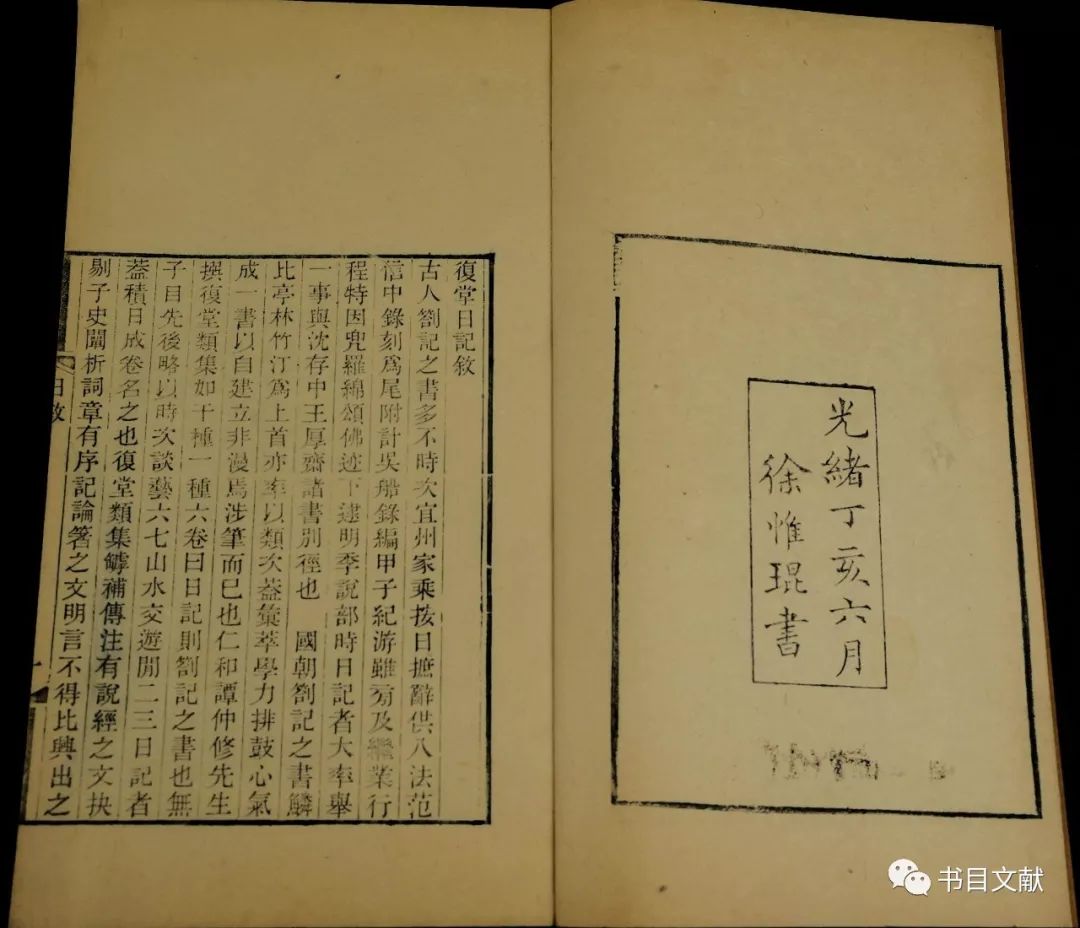 光緒丁亥六月
徐惟琨書
復堂日記敘
古人劄記之書多不時次宜州家乘按日摭辭供八法范
信中錄刻爲尾附計吳船錄編甲子紀游雖㫄及繼業行
程特因兜羅綿頌佛迹下逮明季說部時日記者大率舉
一事與沈存中王厚齋諸書別徑也　國朝劄記之書鱗
比亭林竹汀爲上首亦率以類次葢彙萃學力排鼓心氣
成一書以自建立非漫焉涉筆而已也仁和譚仲修先生
撰復堂類集如干種一種六卷曰日記則劄記之書也無
子目先後略以時次談藝六七山水交遊閒二三日記者
葢積日成卷名之也復堂類集罅補傳注有說經之文抉
剔子史闡析詞章有序記論箸之文明言不得比興出之
日敘
一
书目文献